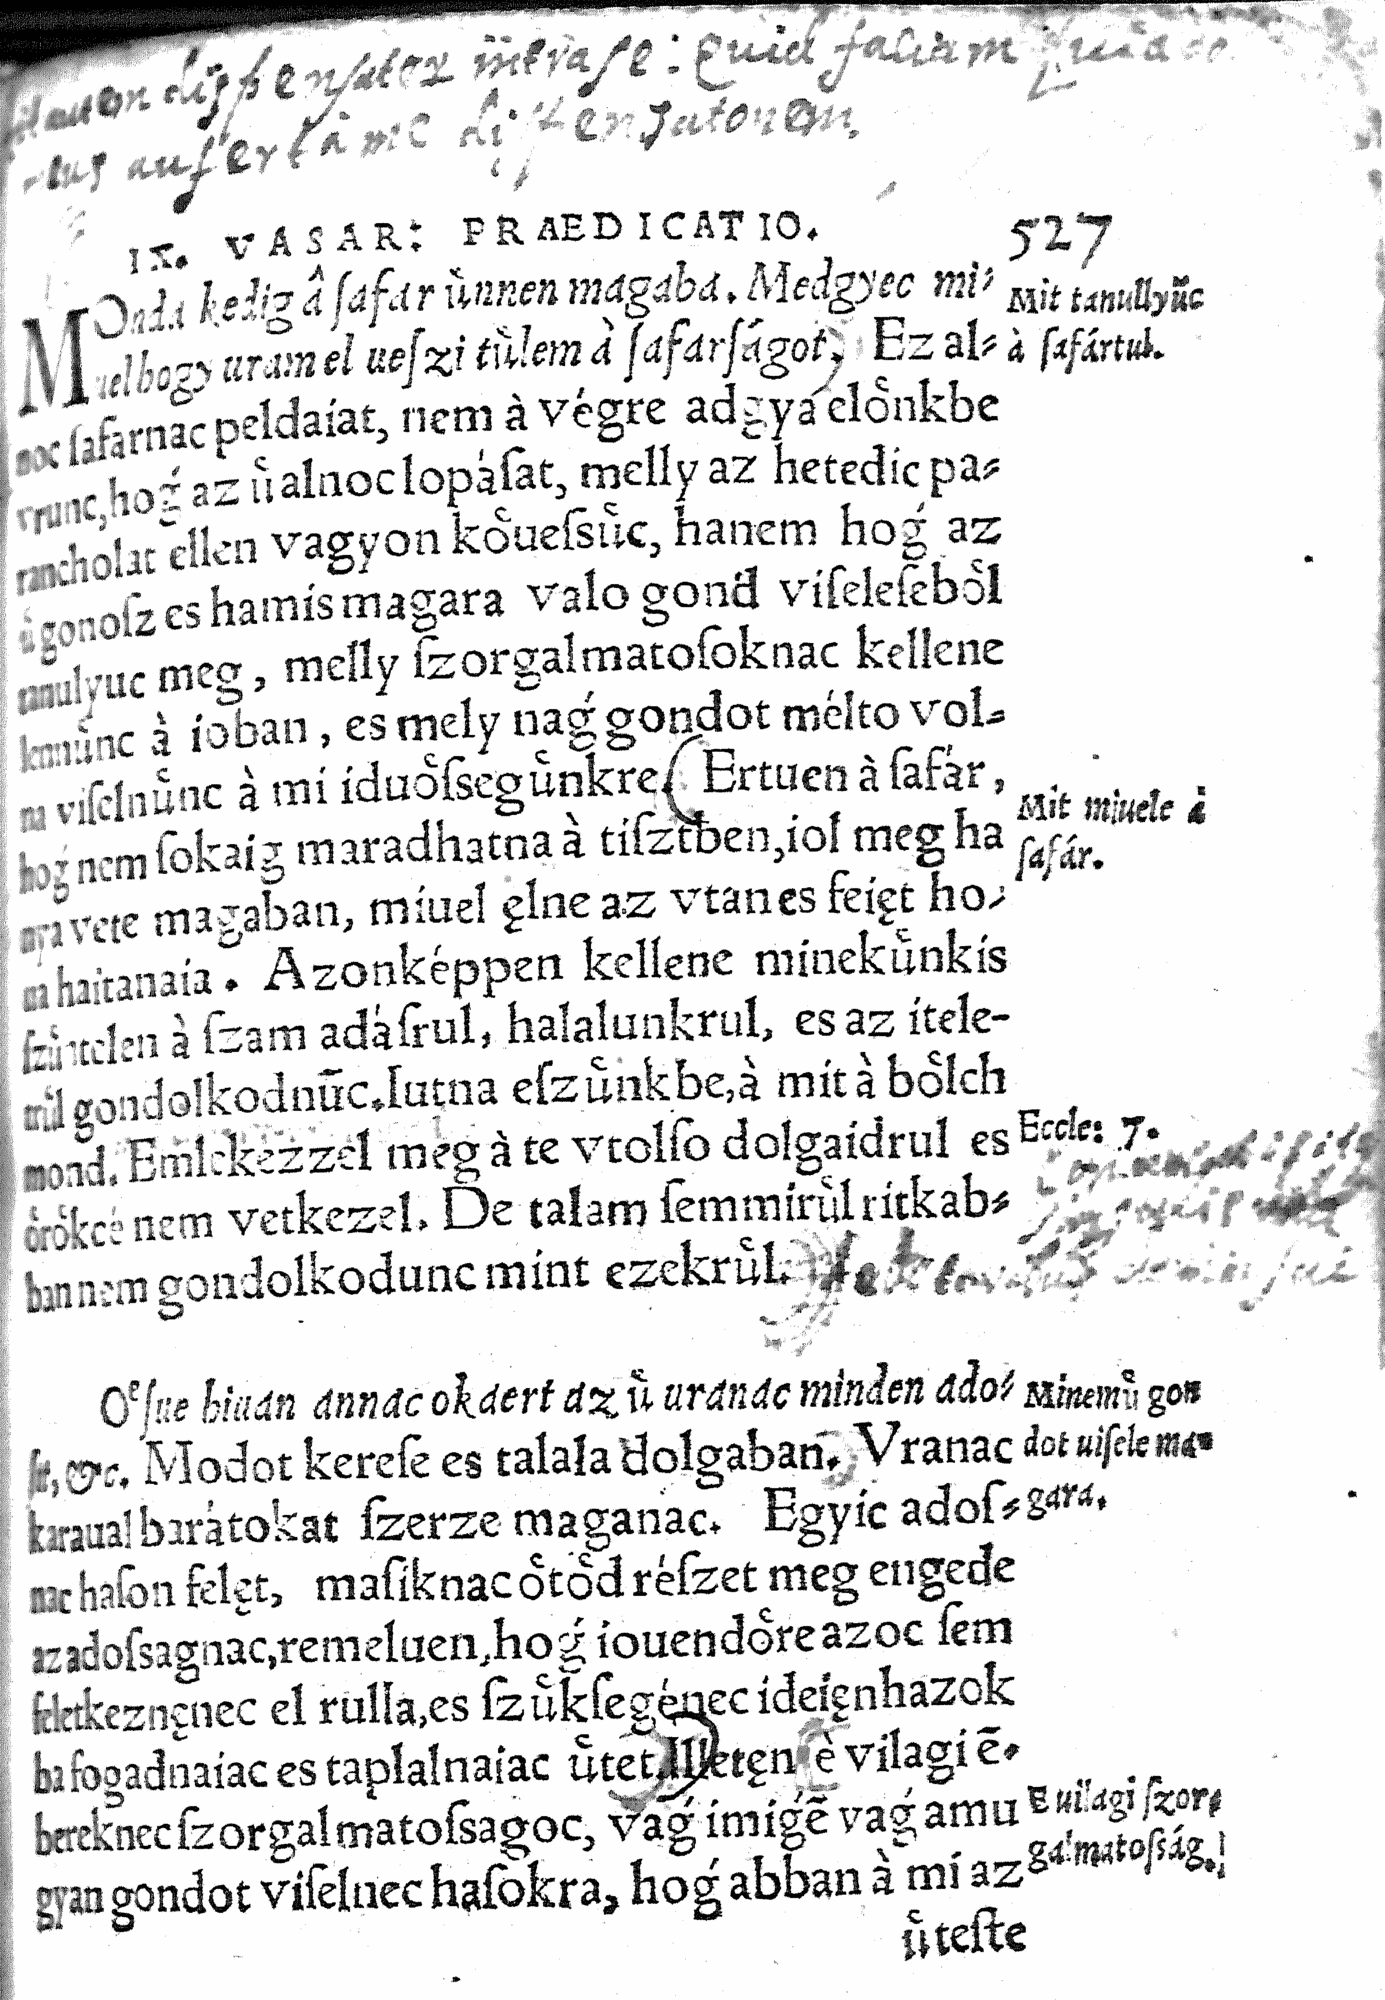 autem dispensator intra se: Quid faciam quia do
nus aufert à me dispensatonem.
IX. VASAR: PRAEDICATIO. 527
MOnda kedig â ſafar uͤnnen magaba. Medgyec mi⸗
uel hogy uram el ueſzi tuͤlem à ſafarſágot, Ez al⸗
noc ſafarnac peldaiat, nem à végre adgya eloͤnkbe
vrunc, hoǵ az uͤ alnoc lopáſat, melly az hetedic pa⸗
rancholat ellen vagyon koͤueſsuͤc, hanem hoǵ az
uͤ gonoſz es hamis magara valo gond viſeleſeboͤl
tanulyuc meg, melly ſzorgalmatoſoknac kellene
lennuͤnc à ioban, es mely naǵ gondot mélto vol⸗
na viſelnuͤnc à mi iduoͤſseguͤnkre. Ertuen à ſafár,
hoǵ nem ſokaig maradhatna à tiſztben, iol meg ha
nya vete magaban, miuel ęlne az vtan es feięt ho⸗
na haitanaia. Azonképpen kellene minekuͤnkis
ſzuͤntelen à ſzam adáſrul, halalunkrul, es az itele-
truͤl gondolkodnūc. Iutna eſzuͤnkbe, à mit à boͤlch
mond. Emlekezzel meg à te vtolſo dolgaidrul es
oͤroͤkcé nem vetkezel. De talam ſemmiruͤl ritkab⸗
ban nem gondolkodunc mint ezekruͤl.
Mit tanullyūc
à ſafártul.
Mit miuele à
ſafár.
Eccle: 7.
Oͤſue hiuan annac okaert az uͤ uranac minden ado⸗
ſit, &c. Modot kereſe es talala dolgaban. Vranac
karaual barátokat ſzerze maganac. Egyic adoſ⸗
nac haſon felęt, maſiknac oͤtoͤd réſzet meg engede
az adoſsagnac, remeluen, hoǵ iouendoͤre azoc ſem
feletkeznęnec el rulla, es ſzuͤkſegénec ideięn hazok
ba fogadnaiac es taplalnaiac uͤtet. Illetęn è vilagi ē⸗
bereknec ſzorgalmatoſsagoc, vaǵ imiǵē vaǵ amu
gyan gondot viſelnec haſokra, hoǵ abban à mi az
uͤ teſte
Minemuͤ gon
dot uiſele ma⸗
gara.
E uilagi ſzor⸗
galmatoſság.